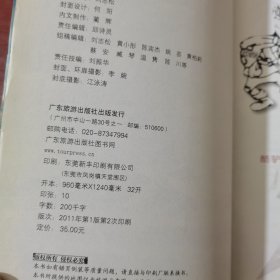 封面设计：何阳
内文制作：董辉
责任编辑：邱诗灵
组稿编辑：刘志松 黄小彤 陈南杰 姚蓉 黄柏莉
蔡安 臧琴 温隽 陈川等
责任技编：刘振华
封面、环扉摄影：李婉
封底摄影：江泳涛
广东旅游出版社出版发行
（广州市中山一路30号之一 邮编：510600）
邮购电话：020-87347994
广东旅游出版社图书网
www.tourpress.cn
印刷：东莞新丰印刷有限公司
（东莞市凤岗镇天堂围区）
开本：960毫米X1240毫米 32开
印张：10
字数：200千字
版次：2011年第1版第2次印刷
定价：35.00元
版权所有 侵权必究
本书如有错页倒装等质量问题，请直接与印刷厂联系换书。